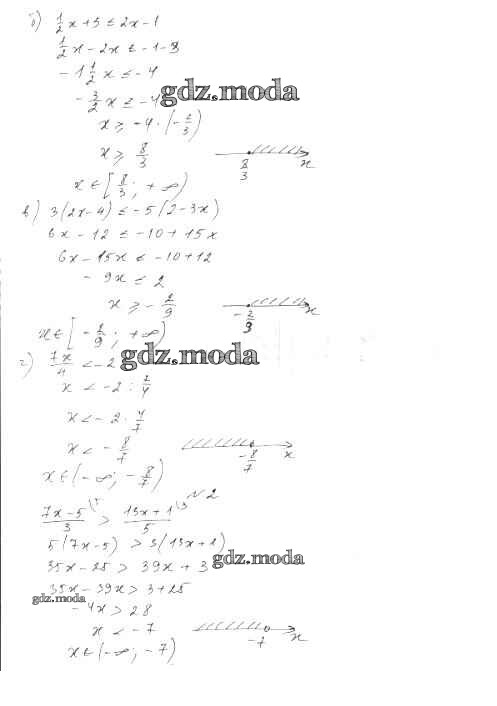 б) 1/2 x + 3 ≤ 2x - 1
1/2 x - 2x ≤ -1 - 3
- 1 1/2 x ≤ -4
- 3/2 x ≤ -4
gdz.moda
x ≥ -4 · (- 2/3)
x ≥ 8/3
8/3 x
x ∈ [8/3; +∞)
в) 3(2x-4) ≤ -5(2-3x)
6x - 12 ≤ -10 + 15x
6x - 15x ≤ -10 + 12
- 9x ≤ 2
x ≥ - 2/9
- 2/9 x
x ∈ [- 2/9; +∞)
г) 7x/4 < -2
gdz.moda
x < -2 : 7/4
x < -2 · 4/7
x < - 8/7
- 8/7 x
x ∈ (-∞; - 8/7)
№2
7x-5/3 \5 > 13x+1/5 \3
5(7x-5) > 3(13x+1)
35x - 25 > 39x + 3
gdz.moda
35x - 39x > 3 + 25
gdz.moda
- 4x > 28
x < -7
-7 x
x ∈ (-∞; -7)